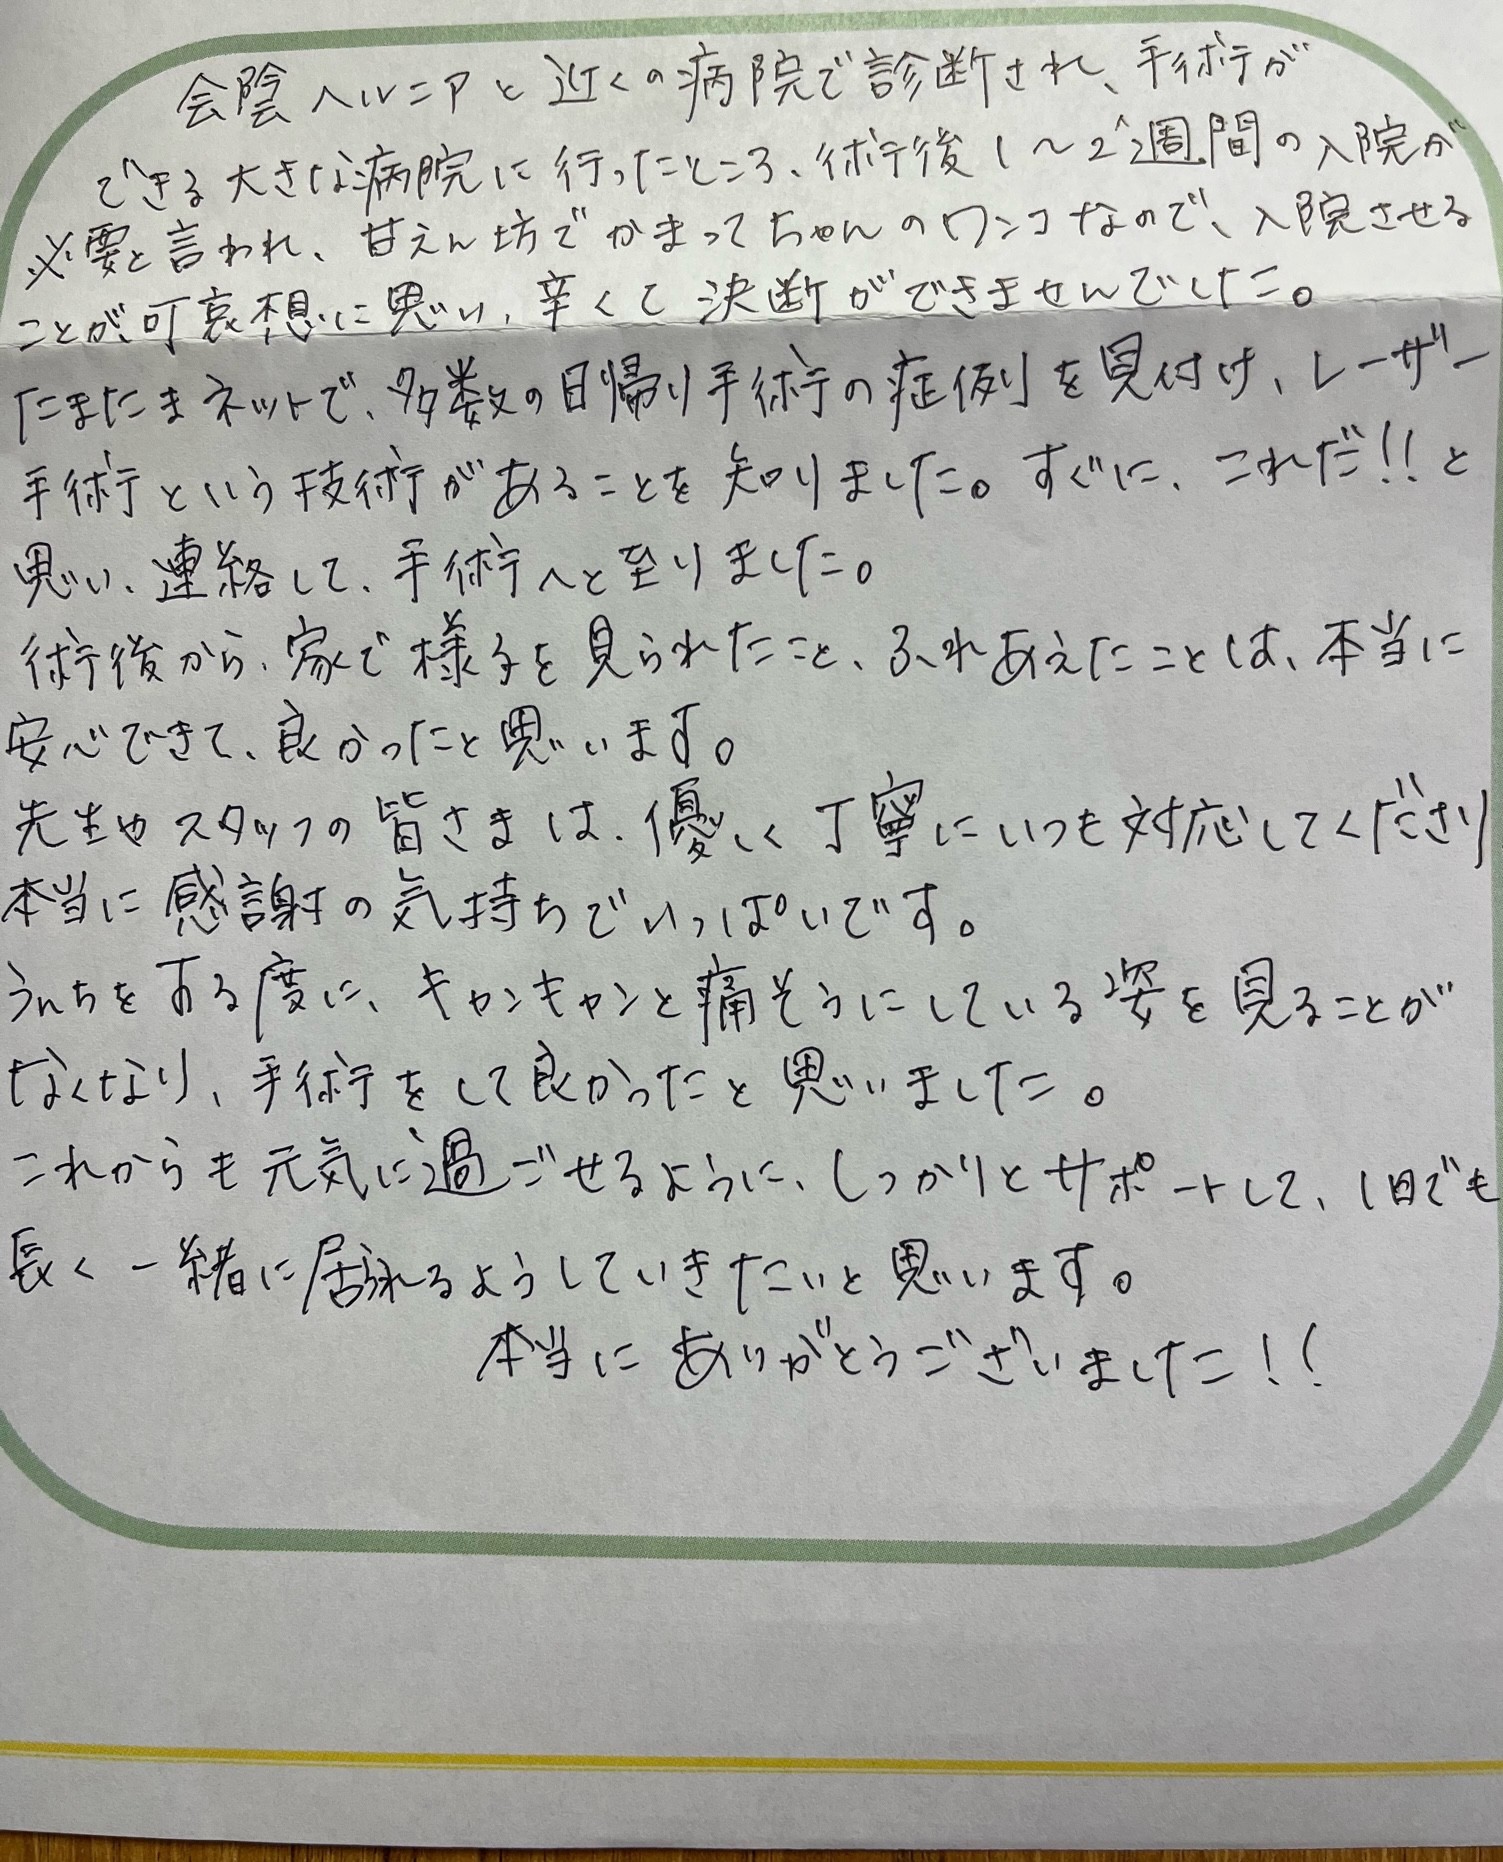 会陰ヘルニアと近くの病院で診断され、手術が
できる大きな病院に行ったところ、術後1〜2週間の入院が
必要と言われ、甘えん坊でかまってちゃんのワンコなので、入院させる
ことが可哀想に思い、辛くて決断ができませんでした。
たまたまネットで、多数の日帰り手術の症例を見付け、レーザー
手術という技術があることを知りました。すぐに、これだ!!と
思い、連絡して、手術へと至りました。
術後から、家で様子を見られたこと、ふれあえたことは、本当に
安心できて、良かったと思います。
先生やスタッフの皆さまは、優しく丁寧にいつも対応してくださり
本当に感謝の気持ちでいっぱいです。
うんちをする度に、キャンキャンと痛そうにしている姿を見ることが
なくなり、手術をして良かったと思いました。
これからも元気に過ごせるように、しっかりとサポートして、1日でも
長く一緒に居られるようしていきたいと思います。
本当にありがとうございました!!